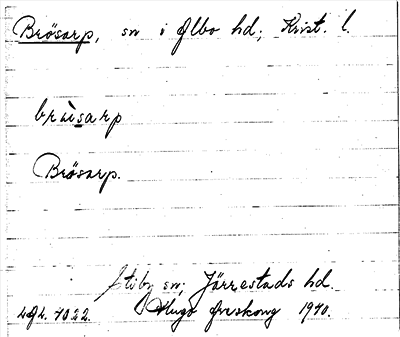 Brösarp, sn i Albo hd; Krist. l.
brìsarp
Brösarp.
Stiby sn; Järrestads hd.
Hugo Areskoug 1940.